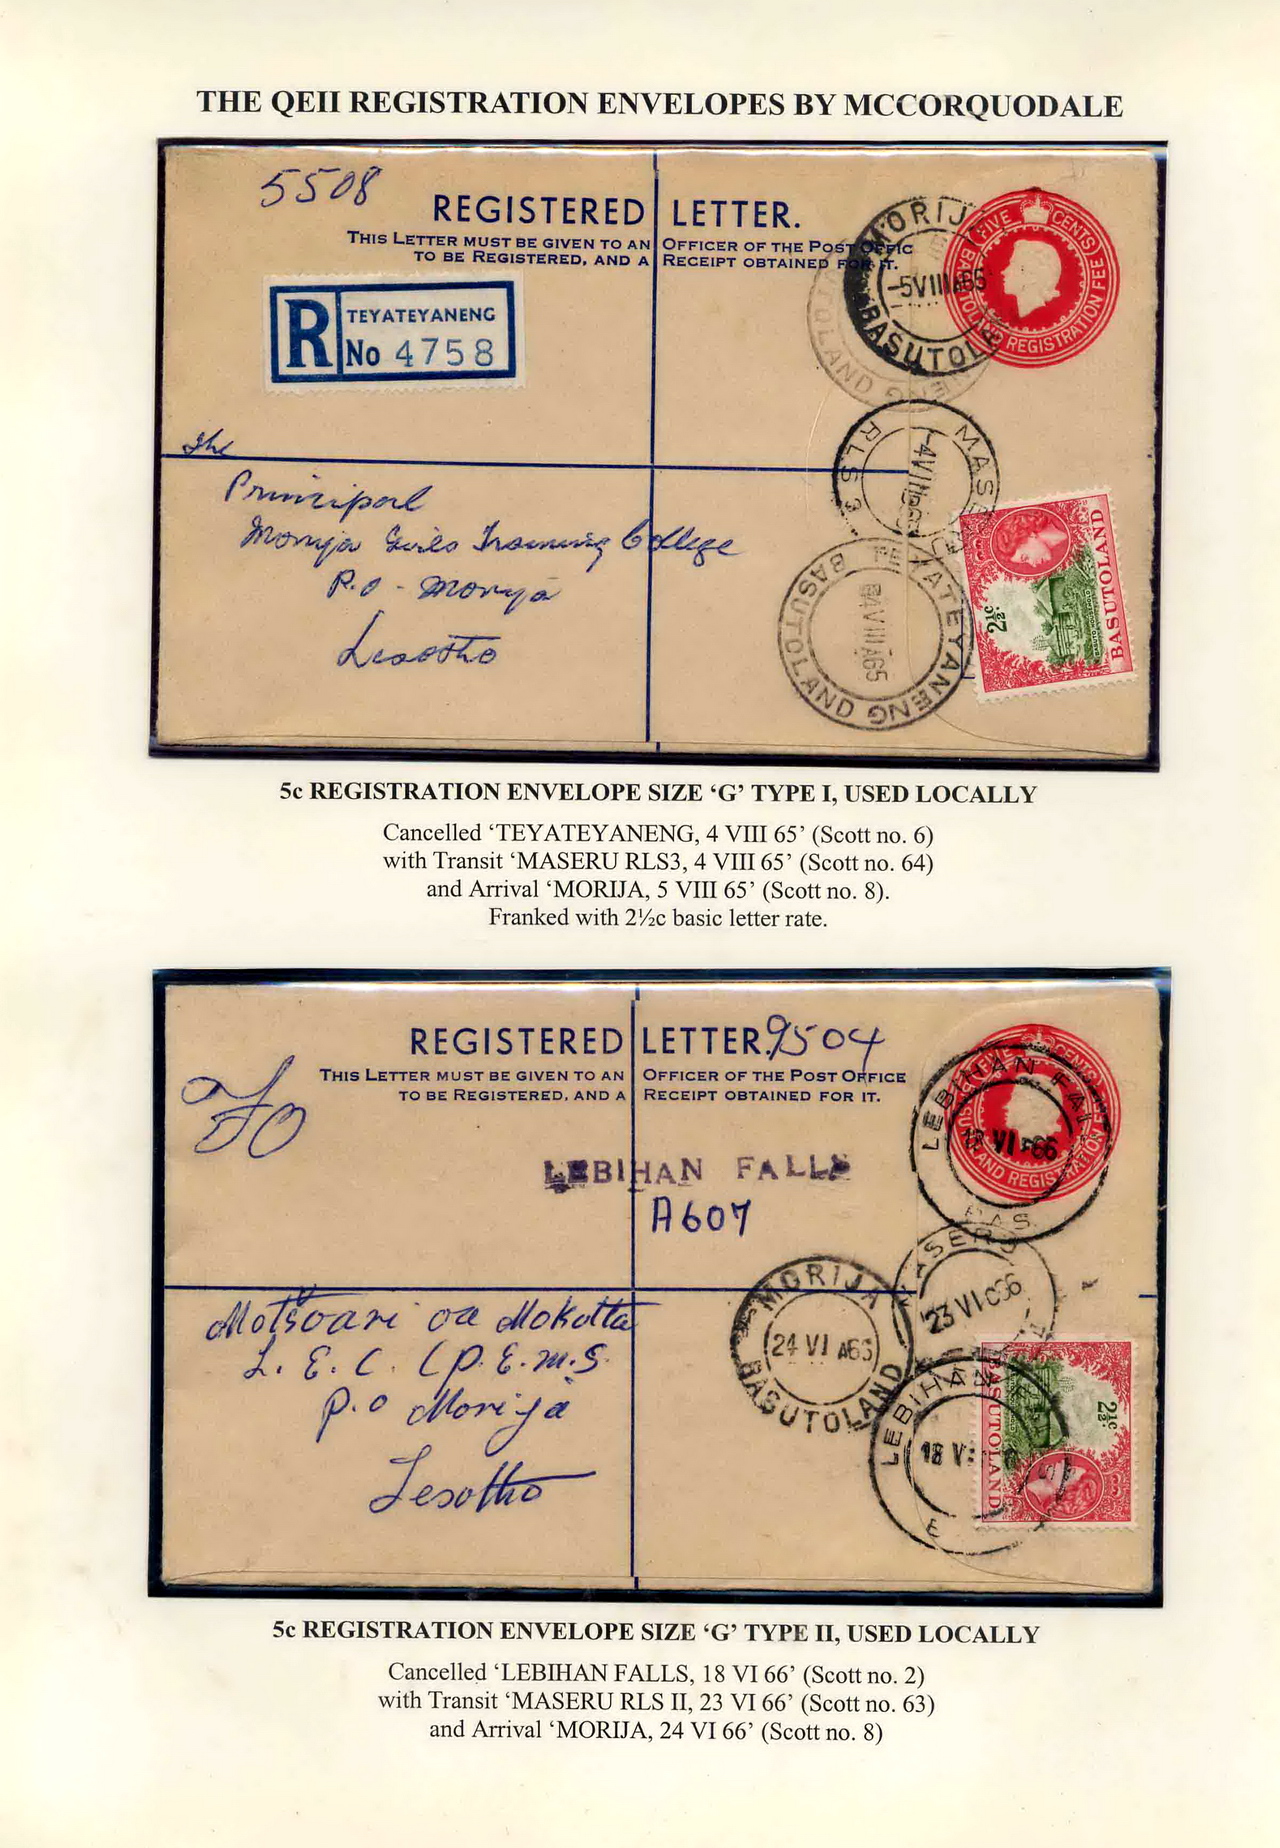 THE QEII REGISTRATION ENVELOPES BY MCCORQUODALE
5508
REGISTERED LETTER.
THIS LETTER MUST BE GIVEN TO AN OFFICER OF THE POST OFFIC
TO BE REGISTERED, AND A RECEIPT OBTAINED FOR IT.
MORIJ
-5 VIII A65
BASUTOL
FIVE CENTS
REGISTRATION FEE
R TEYATEYANENG
No 4758
RLS 3
4 VIII
TEYATEYANENG
4 VIII A65
BASUTOLAND
2½c.
BASUTOLAND
The
Principal
Morija Girls Training College
P.O - Morija
Lesotho
5c REGISTRATION ENVELOPE SIZE ‘G’ TYPE I, USED LOCALLY
Cancelled ‘TEYATEYANENG, 4 VIII 65’ (Scott no. 6)
with Transit ‘MASERU RLS3, 4 VIII 65’ (Scott no. 64)
and Arrival ‘MORIJA, 5 VIII 65’ (Scott no. 8).
Franked with 2½c basic letter rate.
REGISTERED LETTER. 9504
THIS LETTER MUST BE GIVEN TO AN OFFICER OF THE POST OFFICE
TO BE REGISTERED, AND A RECEIPT OBTAINED FOR IT.
LEBIHAN FAL
18 VI 66
BAS
REGISTRATION
LEBIHAN FALLS
A607
MASERU
23 VI C66
MORIJA
24 VI A66
BASUTOLAND
LEBIHAN
18 VI
2½c.
BASUTOLAND
Motšoari oa Mokotta
L. E. C. (P. E. M. S.
P.O Morija
Lesotho
5c REGISTRATION ENVELOPE SIZE ‘G’ TYPE II, USED LOCALLY
Cancelled ‘LEBIHAN FALLS, 18 VI 66’ (Scott no. 2)
with Transit ‘MASERU RLS II, 23 VI 66’ (Scott no. 63)
and Arrival ‘MORIJA, 24 VI 66’ (Scott no. 8)